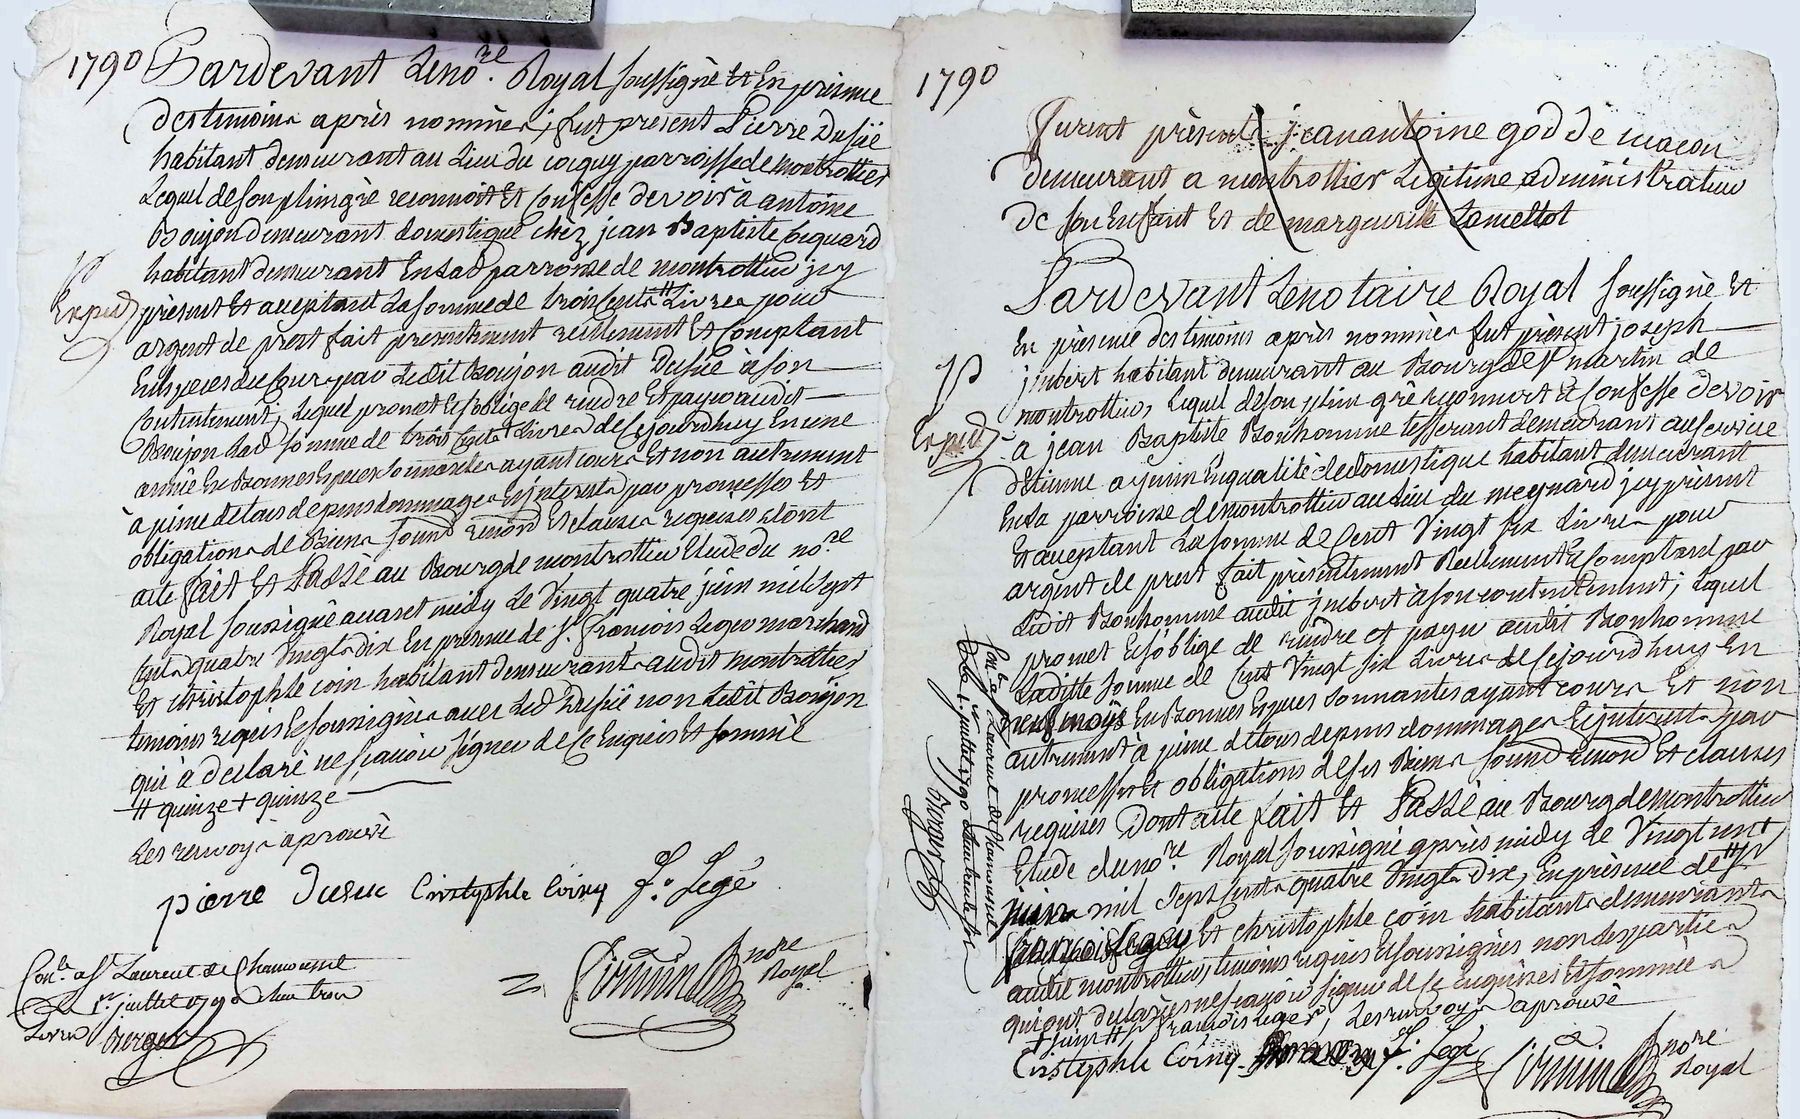 1790 Pardevant Leno.re Royal soussignè Et En prèsence
des temoins après nommès, fut prèsent Pierre Dusüe
habitant demeurant au Lieu du coquy parroisse de montrottier
Lequel de son plein grè reconnoit Et Confesse devoir à antoine
Boujon demeurant domestique chez jean Baptiste Coquard
habitant demeurant En Lad. parroisse de montrottier jcy
prèsent Et acceptant La somme de trois cents # Livres pour
Exped.
argent de prest fait presentement reellement Et Comptant
En Especes de Cour par Ledit Boujon audit Dusüe à son
Contentement; Lequel promet Et s'oblige de rendre Et payer audit
Boujon Lad. somme de trois Cents + Livres de Cejourdhuy En une
annèe En Bonnes Especes sonnantes ayant cours Et non autrement
à peine de tous dèpens dommages Et jnterests par promesses Et
obligations de Biens soumis renon. Et clauses requises dont
acte fait Et Passè au Bourg de montrottier Etude du no.re
Royal soussignè avant midy Le Vingt quatre juin mil sept
Cent quatre Vingt dix En prèsence de s.r francois Leger marchand
Et christophle coin habitant demeurants audit montrottier
temoins requis Et soussignès avec Led. Dusüe non Ledit Boujon
qui à declarè ne sçavoir signer de Ce Enquis Et sommè
# quinze + quinze
Les renvoys aprouvè
pierre Dusuc Cristophle Coing f. Legé
Con.lé a St Laurent de Chamousset
Le 1.er juillet 1790
Livres Berger
Simonin no.re Royal
1790
furent prèsents jean antoine godde macon
demeurant a montrottier Legitime administrateur
de son Enfant Et de margueritte Lamettot
Pardevant Le notaire Royal soussignè Et
En prèsence des temoins après nommès fut prèsent joseph
jmbert habitant demeurant au Bourg de s.t martin de
montrottier, Lequel de son plein grè reconnoit Et Confesse devoir
Exped.
à jean Baptiste Bonhomme tisserant demeurant au service
d'Etienne En qualitè de domestique habitant demeurant
En La parroisse de montrottier au Lieu du meynard jcy prèsent
Et acceptant La somme de Cent Vingt six Livres pour
argent de prest fait presentement Reellement Et Comptant par
Ledit Bonhomme audit jmbert à son contentement; Lequel
promet Et s'oblige de rendre et payer audit Bonhomme
Laditte somme de Cent Vingt six Livres de Cejourdhuy En
neuf mois En Bonnes Especes sonnantes ayant cours Et non
autrement à peine de tous depens dommages Et jnterests par
promesses Et obligations de ses Biens soumis renon. Et clauses
requises Dont acte fait Et Passè au Bourg de montrottier
Etude du no.re Royal soussignè après midy Le Vingt
mil sept Cents quatre Vingt dix, En prèsence de
Et christophle coin habitants demeurants
audit montrottier, temoins requis Et soussignès non Les parties
qui ont declarès ne sçavoir signer de Ce enquises Et sommèes
+ juin # francois Leger, Les renvoys aprouvè
Cristophle Coing f. Legé Simonin no.re Royal
Con.lé a St Laurent de Chamousset
Le 1.er juillet 1790
Berger